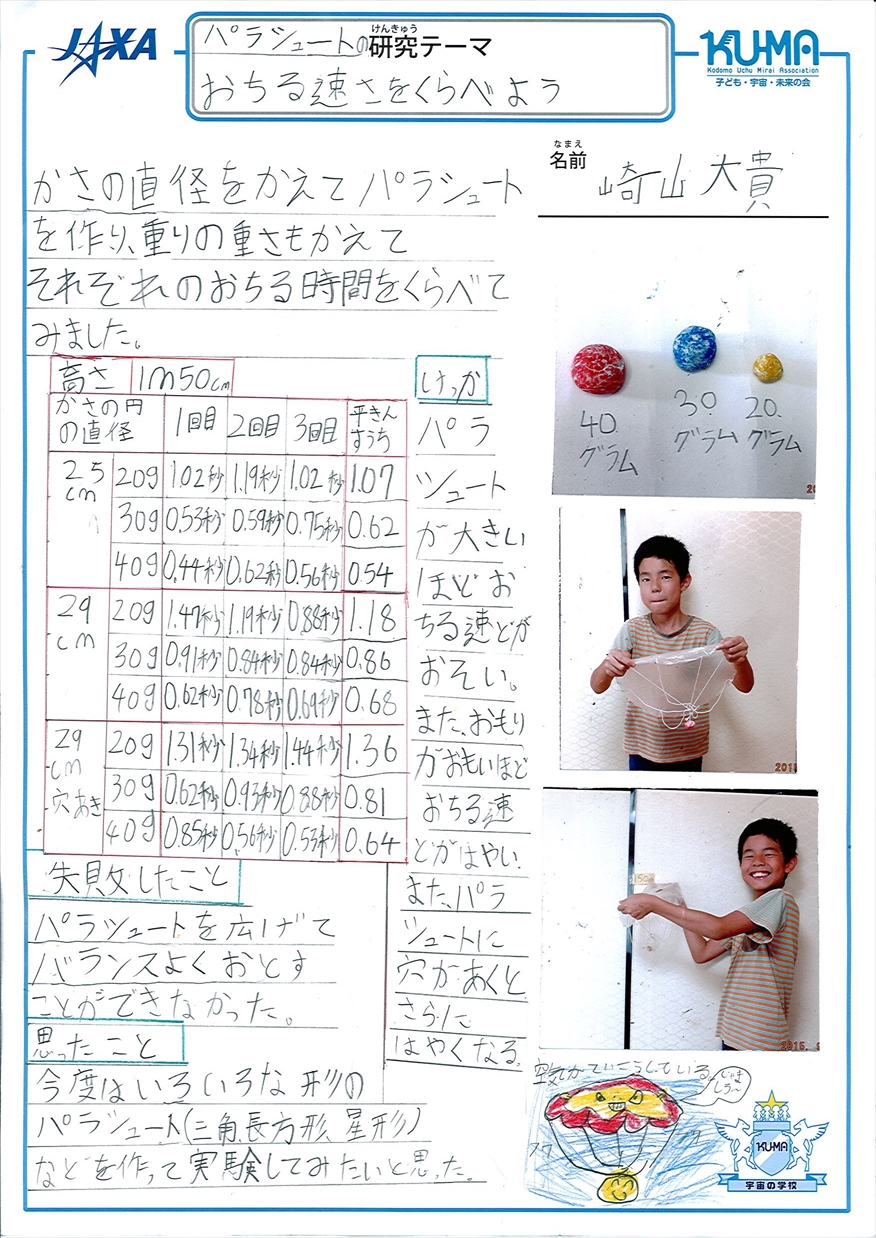 JAXA
パラシュートの研究テーマ
けんきゅう
おちる速さをくらべよう
KU-MA
Kodomo Uchu Mirai Association
子ども・宇宙・未来の会
なまえ
名前
崎山大貴
かさの直径をかえてパラシュート
を作り、重りの重さもかえて
それぞれのおちる時間をくらべて
みました。
高さ 1m50cm
かさの円の直径 1回目 2回目 3回目 平きんすうち
25cm 20g 1.02秒 1.19秒 1.02秒 1.07
30g 0.53秒 0.59秒 0.75秒 0.62
40g 0.44秒 0.62秒 0.56秒 0.54
29cm 20g 1.47秒 1.19秒 0.88秒 1.18
30g 0.91秒 0.84秒 0.84秒 0.86
40g 0.62秒 0.78秒 0.69秒 0.68
29cm穴あき 20g 1.31秒 1.34秒 1.44秒 1.36
30g 0.62秒 0.93秒 0.88秒 0.81
40g 0.85秒 0.56秒 0.53秒 0.64
けっか
パラ
シュート
が大きい
ほどお
ちる速どが
おそい。
また、おもり
がおもいほど
おちる速
どがはやい。
また、パラ
シュートに
穴があくと
さらに
はやくなる。
失敗したこと
パラシュートを広げて
バランスよくおとす
ことができなかった。
思ったこと
今度はいろいろな形の
パラシュート(三角、長方形、星形)
などを作って実験してみたいと思った。
40グラム
30グラム
20グラム
201
2015.
空気がていこうしている。
じゃましろ〜
KU-MA
宇宙の学校